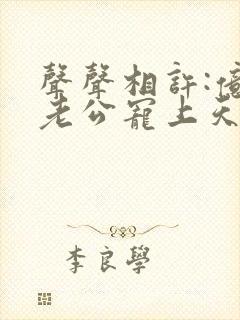 聲聲相許:
老公寵上天
李良學